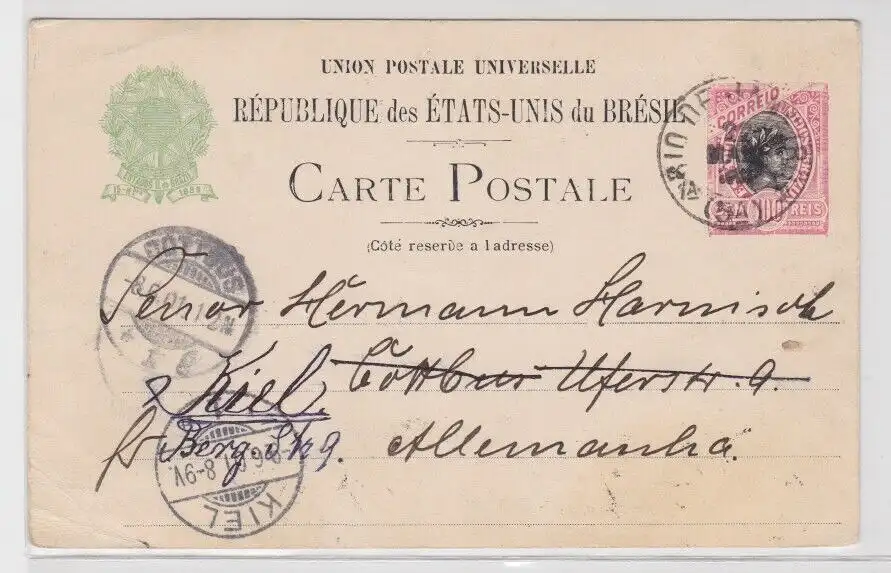 UNION POSTALE UNIVERSELLE
RÉPUBLIQUE des ÉTATS-UNIS du BRÉSIL
CARTE POSTALE
(Côté reserve a l adresse)
CORREIO
100 REIS
RIO DE
(5A)
1889
COTTBUS
Senor Hermann Harnisch
Cottbus Uferstr. 9.
Kiel
Berg Str 9.
Allemanha.
8-9V
KIEL